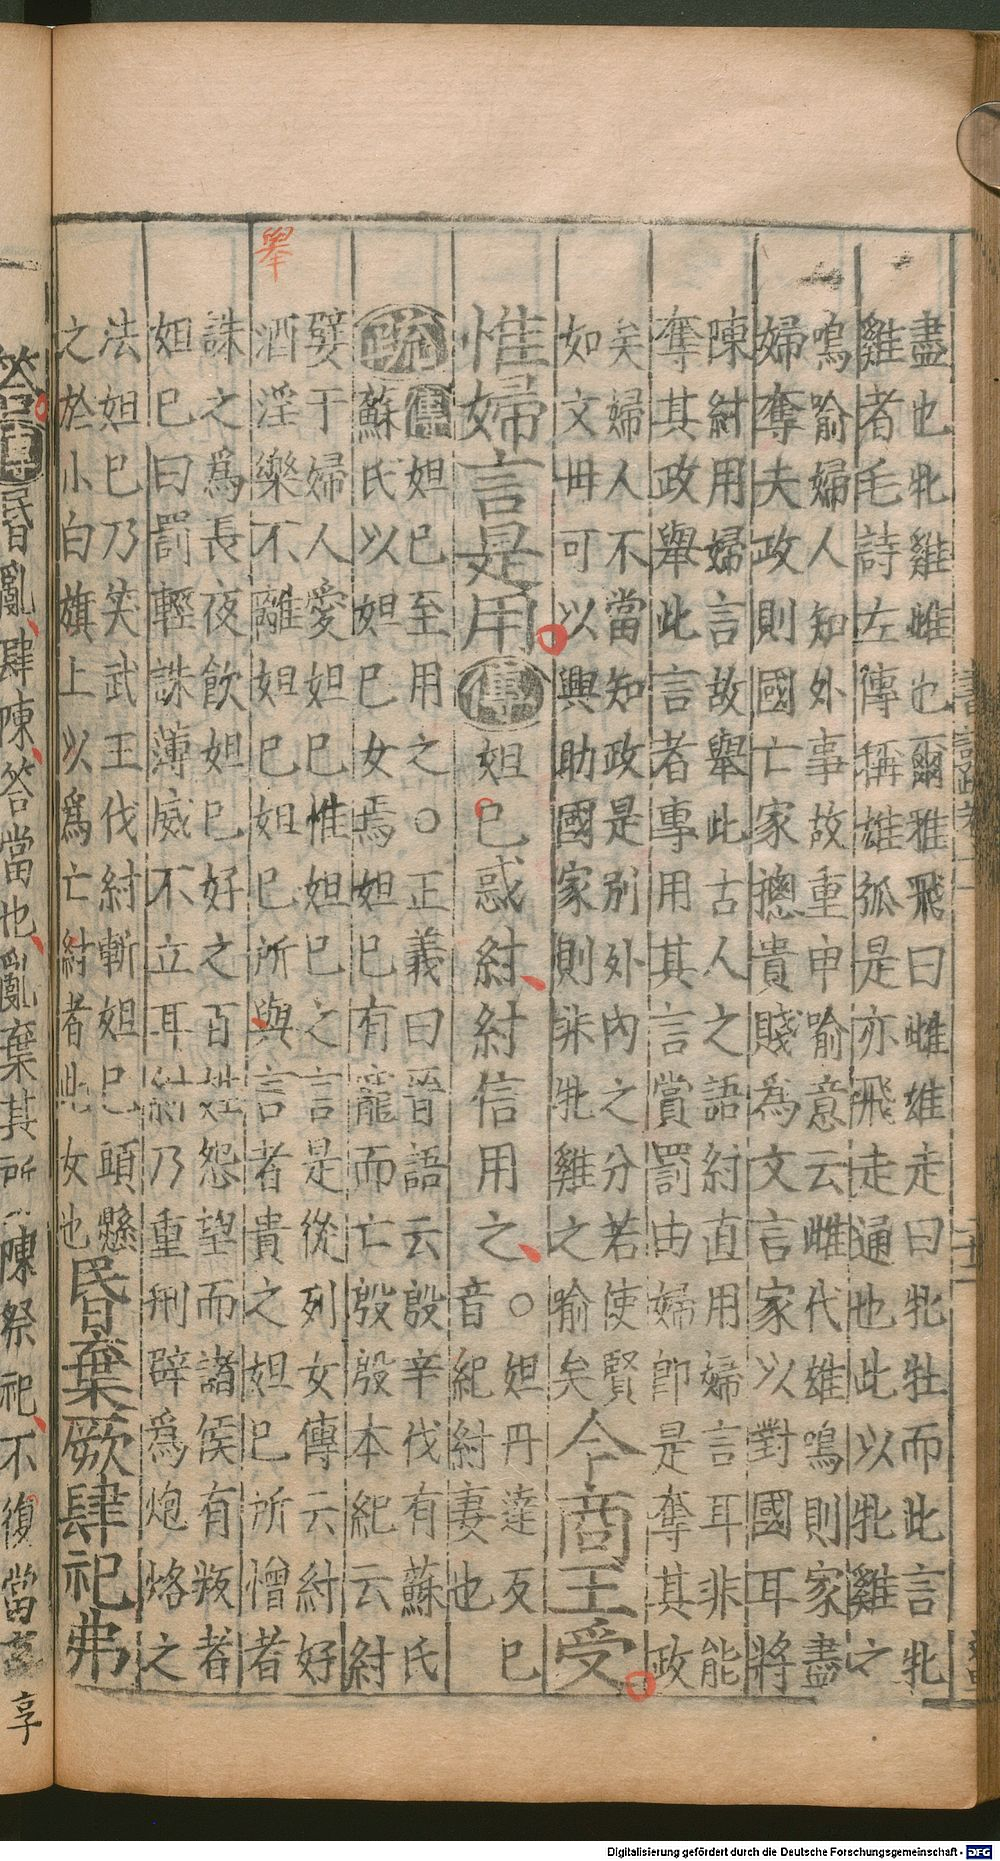 盡也牝雞雌也爾雅飛曰雌雄走曰牝牡而此言牝
雞者毛詩左傳稱雄狐是亦飛走通也此以牝雞之
鳴喻婦人知外事故重申喻意云雌代雄鳴則家盡
婦奪夫政則國亡家揔貴賤為文言家以對國耳將
陳紂用婦言故舉此古人之語紂直用婦言耳非能
奪其政舉此言者專用其言賞罰由婦即是奪其政
矣婦人不當知政是別外內之分若使賢
如文母可以興助國家則非牝雞之喻矣
今商王受
惟婦言是用
傳
妲己惑紂紂信用之
○妲丹達反己
音紀紂妻也
疏
傳妲己至用之○正義曰晉語云殷辛伐有蘇氏
蘇氏以妲己女焉妲己有寵而亡殷殷本紀云紂
嬖于婦人愛妲己惟妲己之言是從列女傳云紂好
酒淫樂不離妲己妲己所與言者貴之妲己所憎者
誅之為長夜飲妲己好之百姓怨望而諸侯有叛者
妲己曰罰輕誅薄威不立耳紂乃重刑辟為炮烙之
法妲己乃笑武王伐紂斬妲己頭懸
之於小白旗上以為亡紂者此女也
昬棄厥肆祀弗
舉
答
傳
昬亂肆陳答當也亂棄其所陳祭祀不復當
享
Digitalisierung gefördert durch die Deutsche Forschungsgemeinschaft - DFG